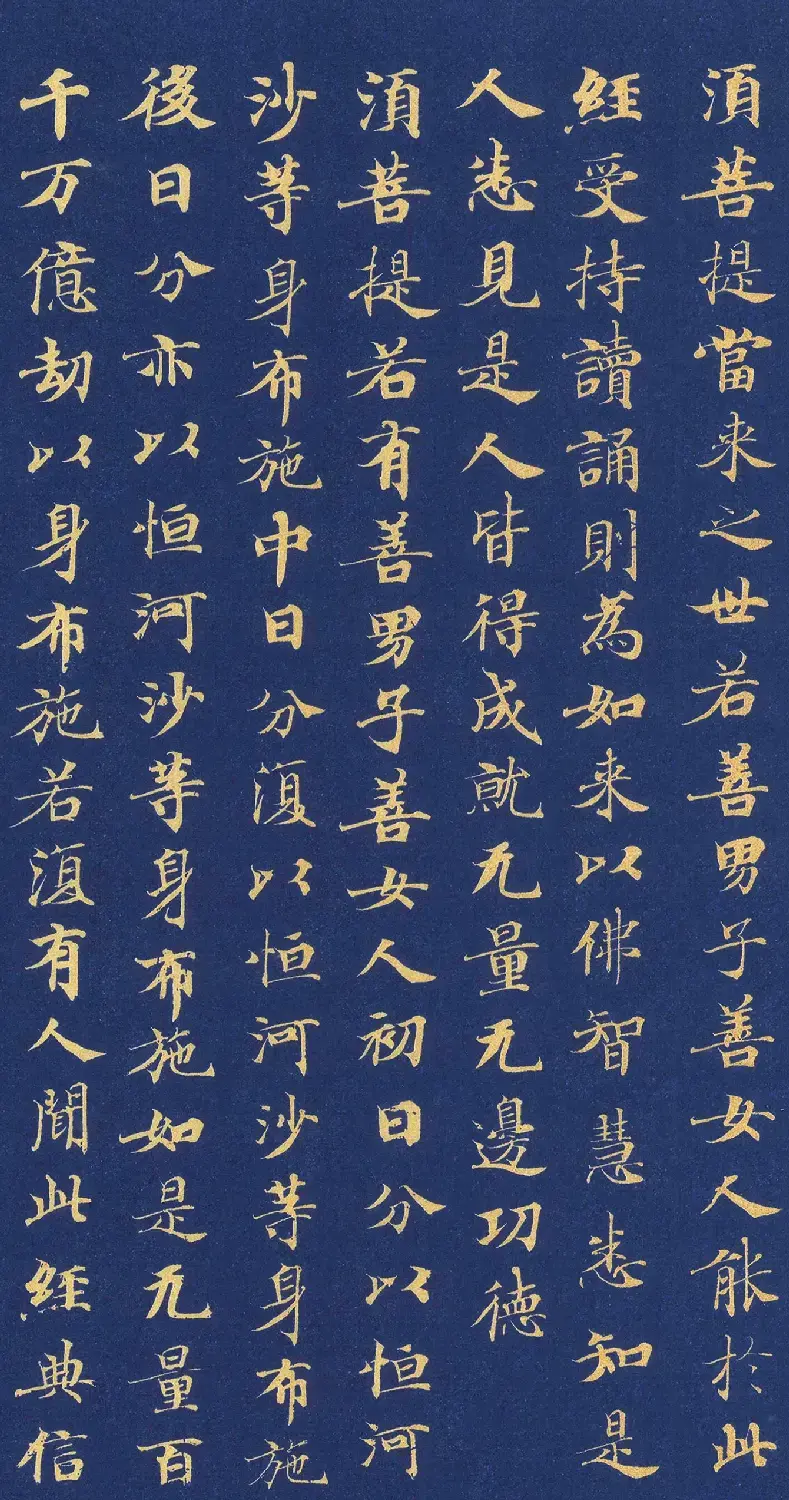 須菩提當来之世若善男子善女人能於此
經受持讀誦則為如来以佛智慧悉知是
人悉見是人皆得成就无量无邊功德
須菩提若有善男子善女人初日分以恒河
沙等身布施中日分復以恒河沙等身布施
後日分亦以恒河沙等身布施如是无量百
千万億劫以身布施若復有人聞此經典信